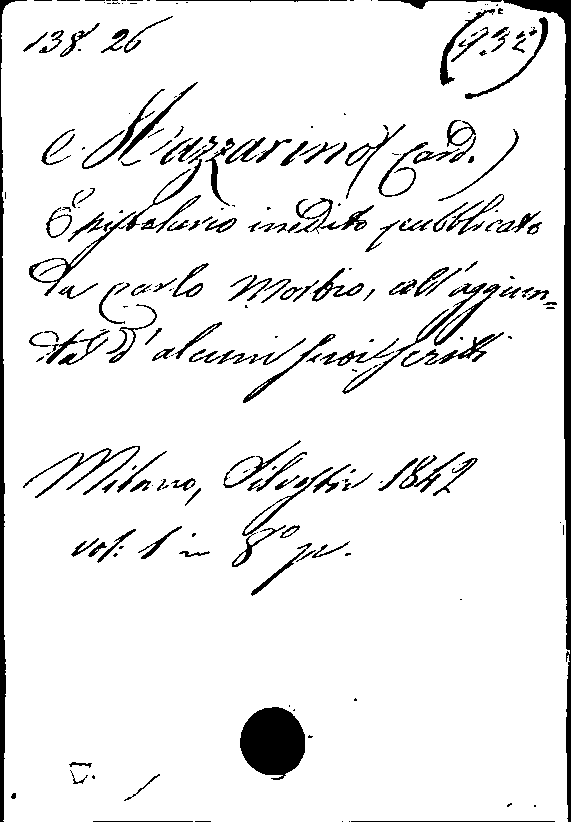 138. 26 (932)
e. Mazzarino (Card.)
Epistolario inedito pubblicato
da Carlo Morbio, coll'aggiun=
ta d'alcuni suoi scritti
Milano, Silvestri 1842
vol: 1 in 8º pic.
V.